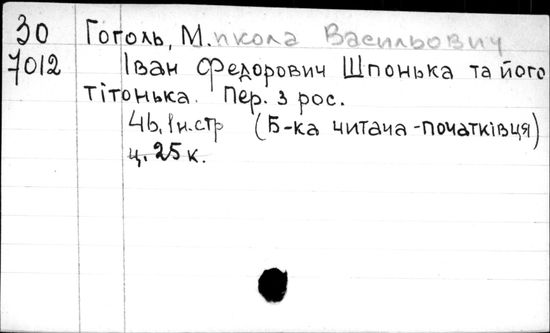 30 Гоголь, Микола Васильович
7012 Іван Федорович Шпонька та його
тітонька. Пер. з рос.
46, Ін.стр (Б-ка читача-початківця)
ц. 25 к.